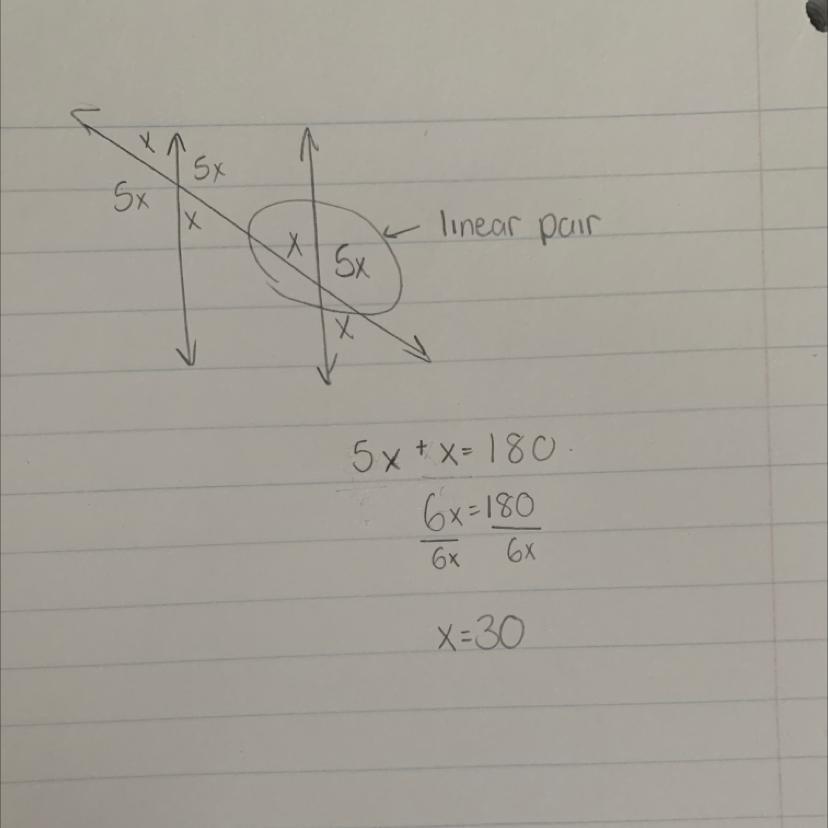 x
5x
5x
x
linear pair
x
5x
x
5x + x = 180
6x = 180
6x 6x
x = 30